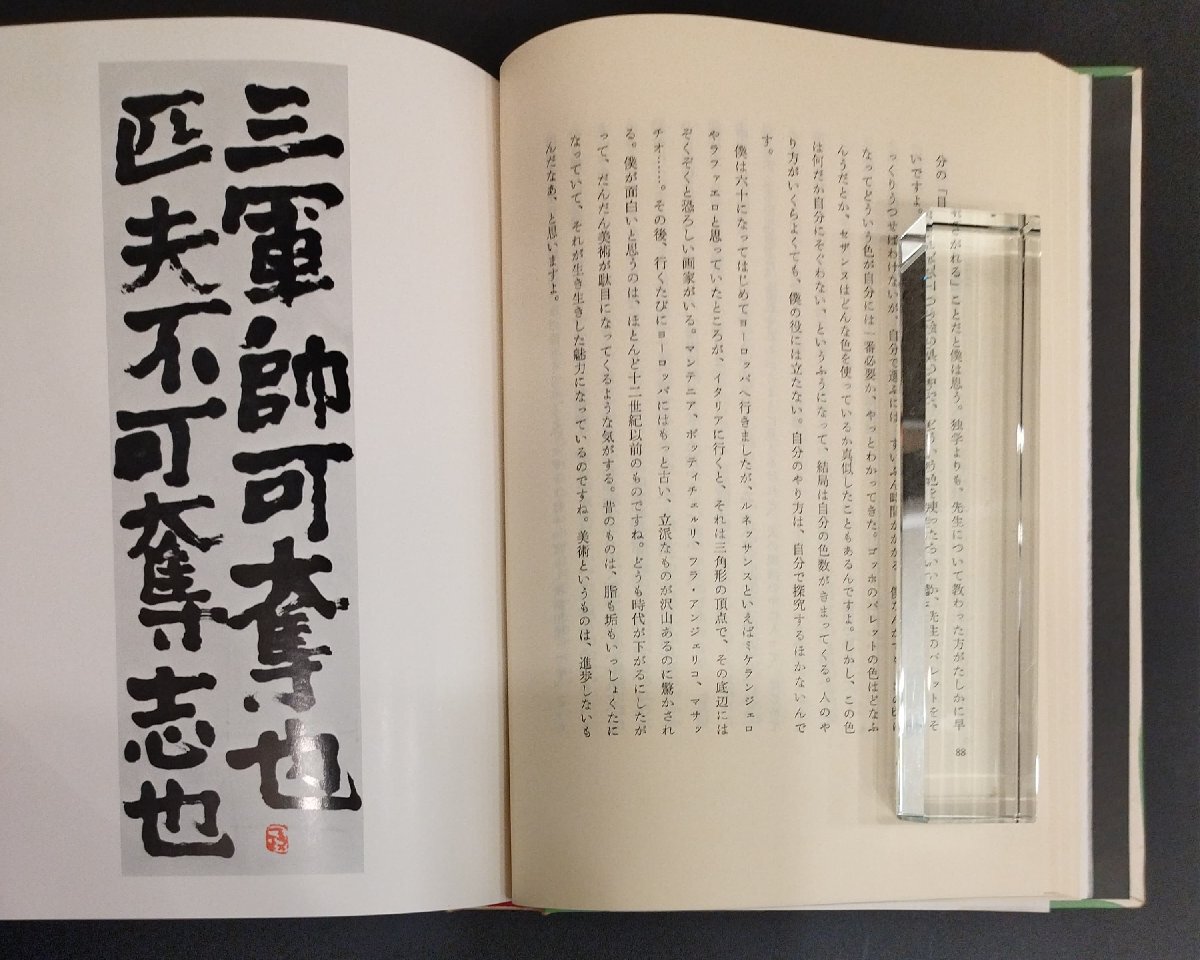 分の「目がれる」ことだと僕は思う。独学よりも、先生について教わった方がたしかに早
いですよ。先生のパレットをそ
っくりうつせばわけないが、自分で選ぶには、ずいぶん時間がかかる。
なってどういう色が自分には一番必要か、やっとわかってきた。ゴッホのパレットの色はどなふ
んうだとか、セザンヌはどんな色を使っているか真似したこともあるんですよ。しかし、この色
は何だか自分にそぐわない、というふうになって、結局は自分の色数がきまってくる。人のや
り方がいくらよくても、僕の役には立たない。自分のやり方は、自分で探究するほかないんで
す。
僕は六十になってはじめてヨーロッパへ行きましたが、ルネッサンスといえばミケランジェロ
やラファエロと思っていたところが、イタリアに行くと、それは三角形の頂点で、その底辺には
ぞくぞくと恐ろしい画家がいる。マンテニア、ボッティチェルリ、フラ・アンジェリコ、マサッ
チオ……。その後、行くたびにヨーロッパにはもっと古い、立派なものが沢山あるのに驚かされ
る。僕が面白いと思うのは、ほとんど十二世紀以前のものですね。どうも時代が下がるにしたが
って、だんだん美術が駄目になってくるような気がする。昔のものは、脂も垢もいっしょくたに
なっていて、それが生き生きした魅力になっているのですね。美術というものは、進歩しないも
んだなあ、と思いますよ。
88
三軍帥可奪也
匹夫不可奪志也